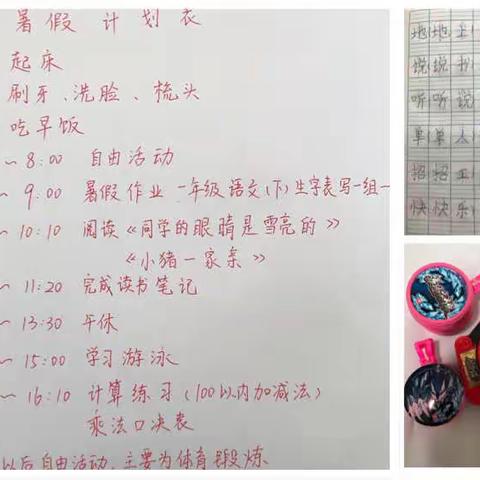 暑假计划表
起床
刷牙、洗脸、梳头
吃早饭
~8:00 自由活动
~9:00 暑假作业 一年级语文(下)生字表写一组一
~10:10 阅读《同学的眼睛是雪亮的》
《小猪一家亲》
~11:20 完成读书笔记
~13:30 午休
~15:00 学习游泳
~16:10 计算练习(100以内加减法)
乘法口决表
以后自由活动,主要为体育锻炼.
地地上
说说书
听听说
单单人
招招工
快快乐